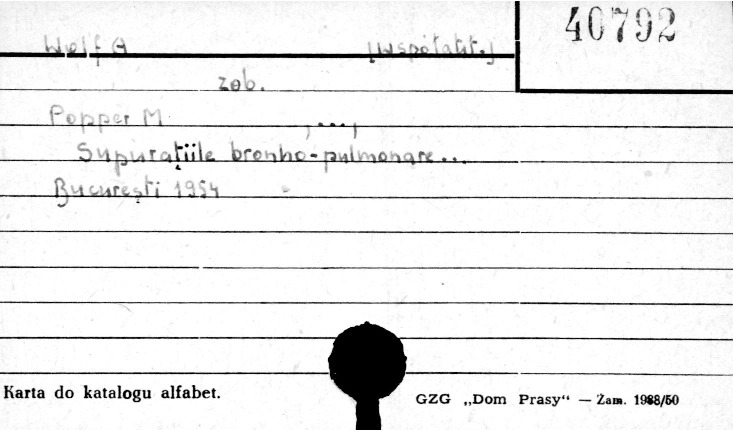 40792
Wolf A [współaut.]
zob.
Popper M , ... ,
Supurațiile bronho-pulmonare...
București 1954
Karta do katalogu alfabet.
GZG „Dom Prasy“ — Zam. 1988/50